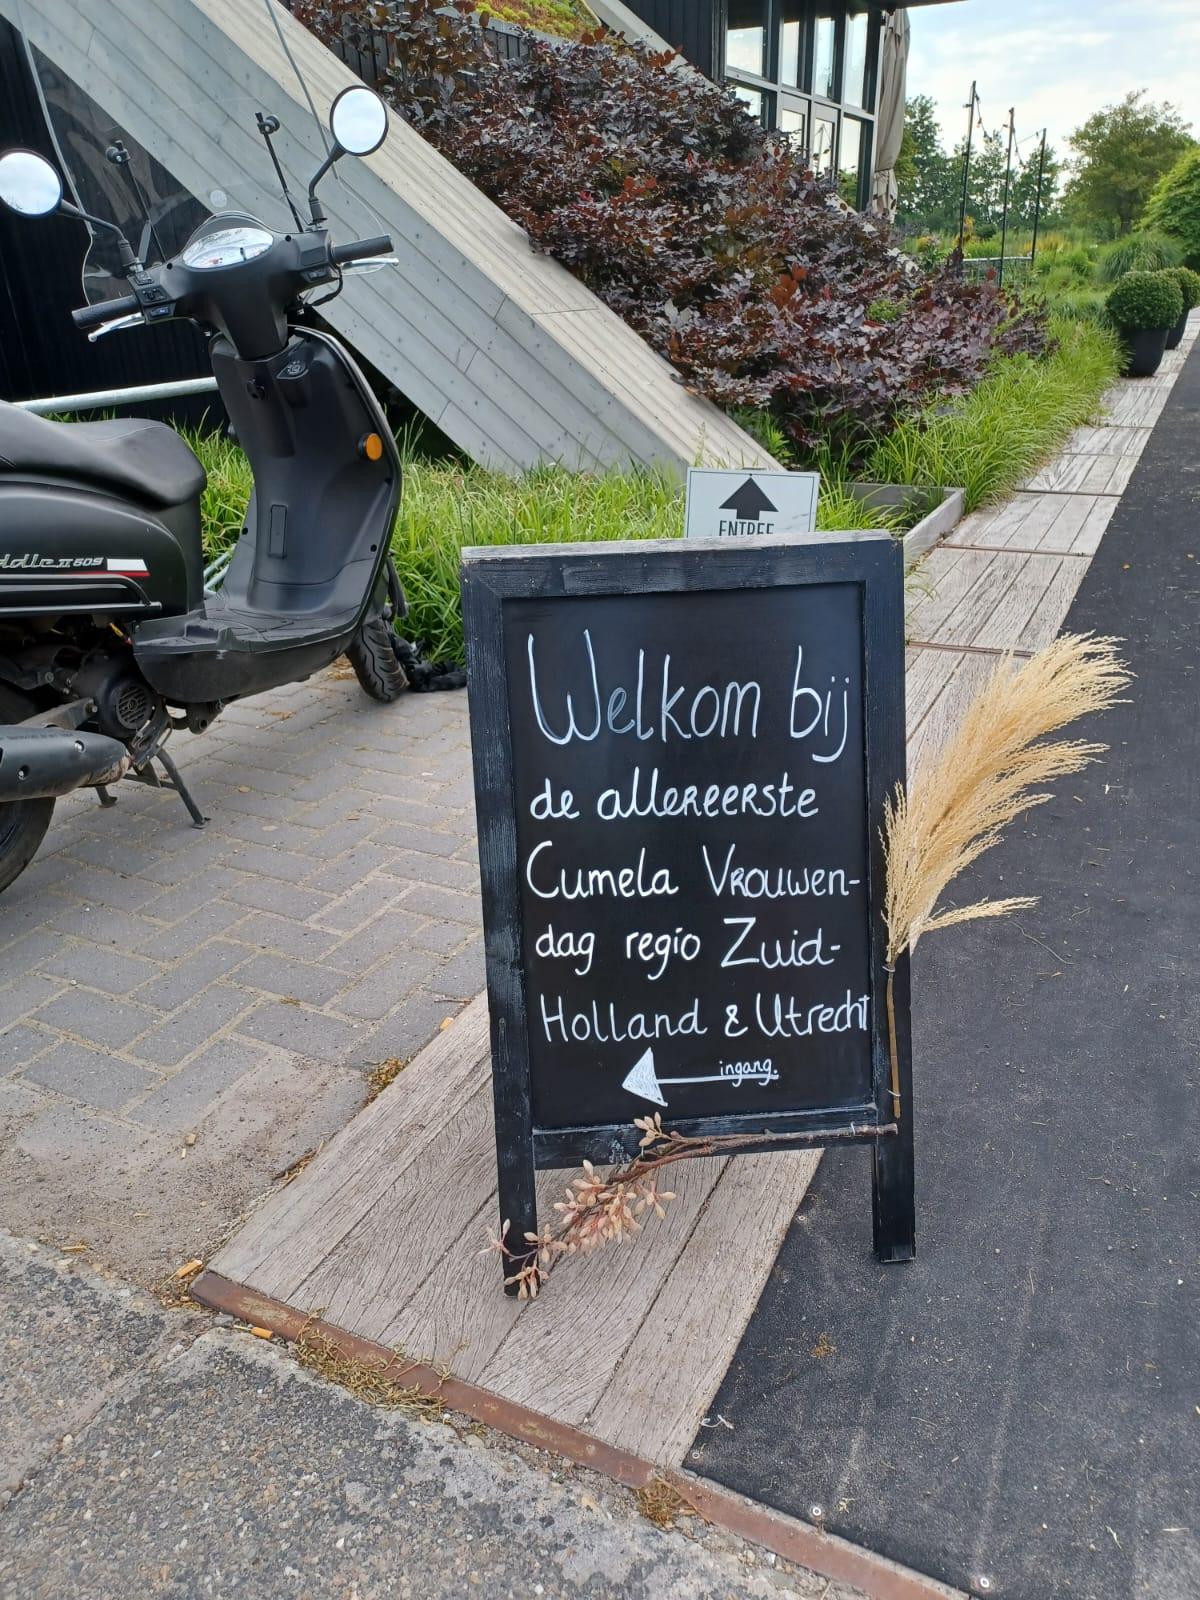 ENTREE
ddle II 50S
Welkom bij
de allereerste
Cumela Vrouwen-
dag regio Zuid-
Holland & Utrecht
ingang.